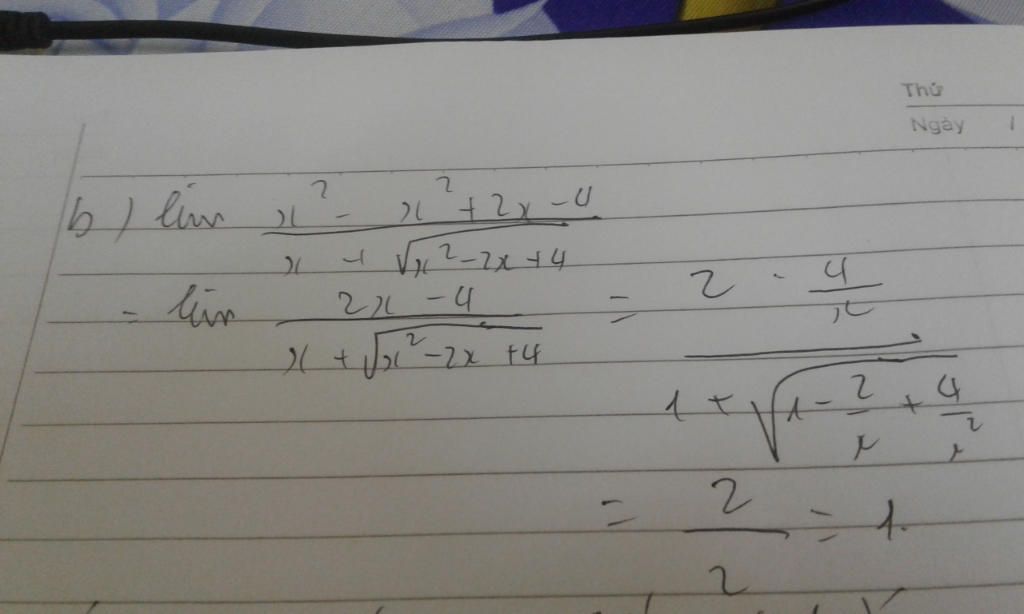 Thứ
Ngày /
b) lim \frac{x^2 - x^2 + 2x - 4}{x + \sqrt{x^2 - 2x + 4}}
= lim \frac{2x - 4}{x + \sqrt{x^2 - 2x + 4}} = \frac{2 - \frac{4}{x}}{1 + \sqrt{1 - \frac{2}{x} + \frac{4}{x^2}}}
= \frac{2}{2} = 1.